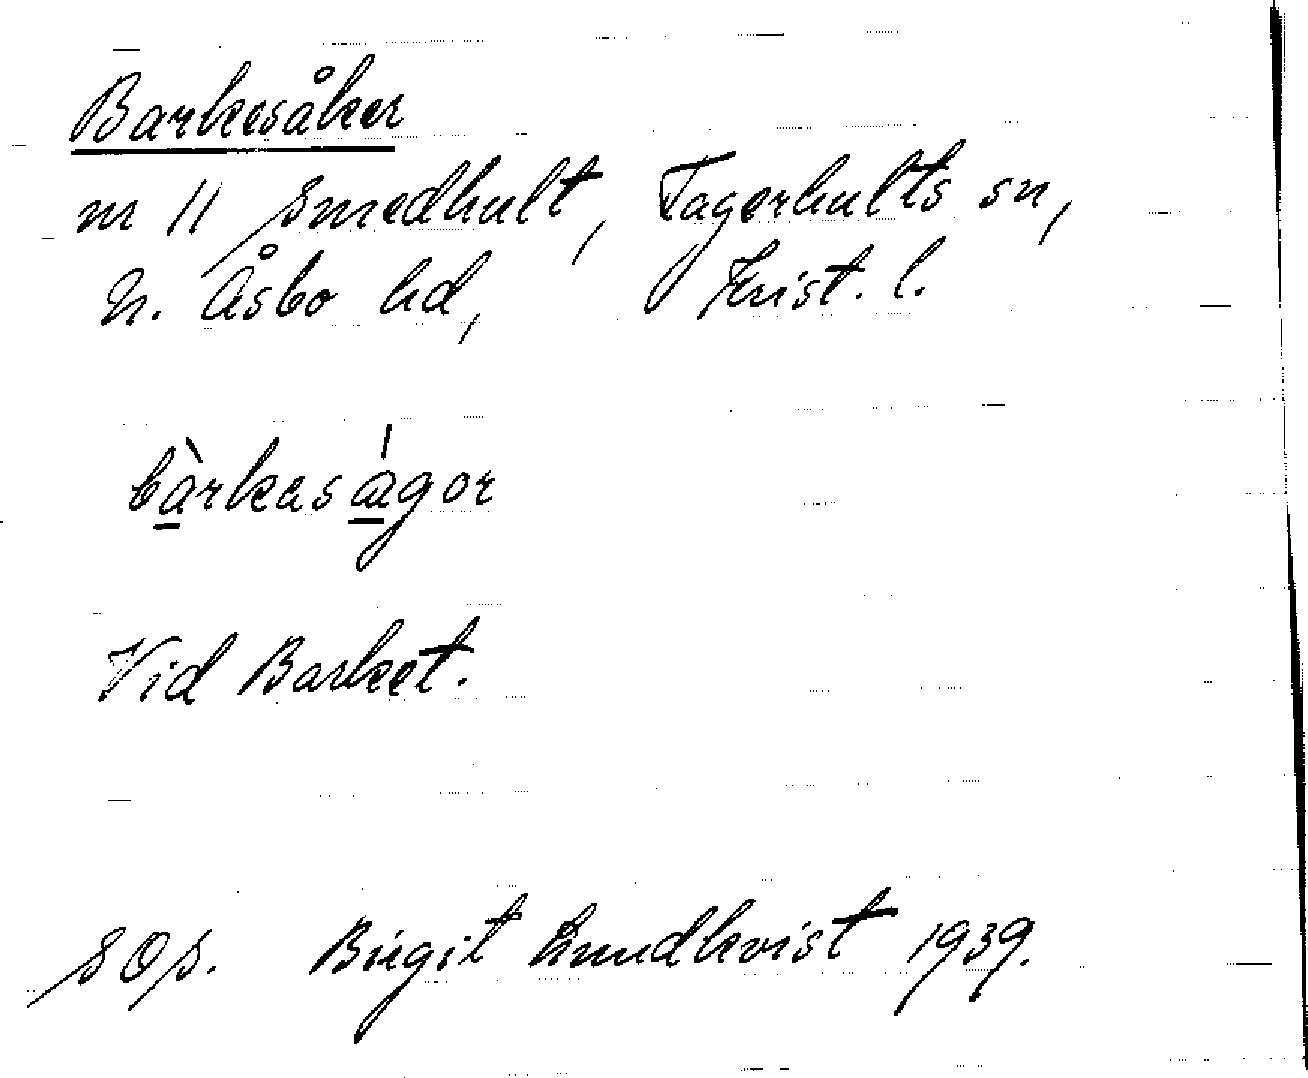 Barkesåker
nr 11 Smedhult, Fagerhults sn,
N. Åsbo hd, Krist. l.
bàrkasågor
Vid Barket.
SOp. Birgit Lundkvist 1939.